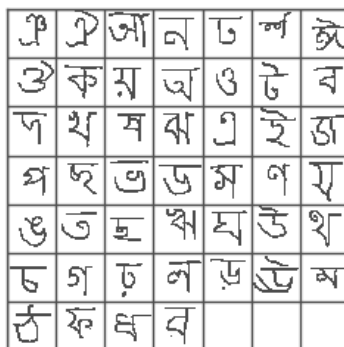 ঞ ঐ আ ন ঢ র্শ ঈ
ঔ ক য় অ ও ট ব
দ খ ষ ঝ এ ই জ
প ছ ভ ড স ণ য
ঙ ত হ ঋ ঘ উ থ
চ গ ঢ় ল ড় ঊ ম
ঠ ফ ধ র